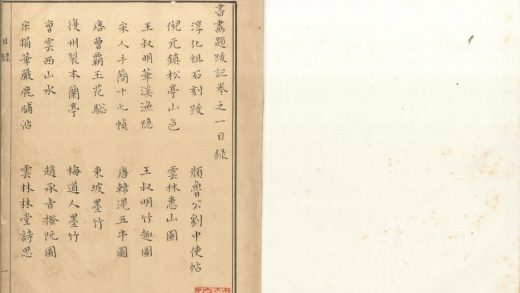 書畫題跋記卷之一目錄
淳化祖石刻跋
顏魯公劉中使帖
倪元鎮松亭山色
雲林惠山圖
王叔明苕溪漁隱
王叔明竹趣圖
宋人手簡十七幀
唐韓滉五牛圖
唐曹霸玉花驄
東坡墨竹
復州裂本蘭亭
梅道人墨竹
曹雲西山水
趙承旨撥阮圖
宋搨華嚴鹿脯帖
雲林林堂詩思
目錄
一